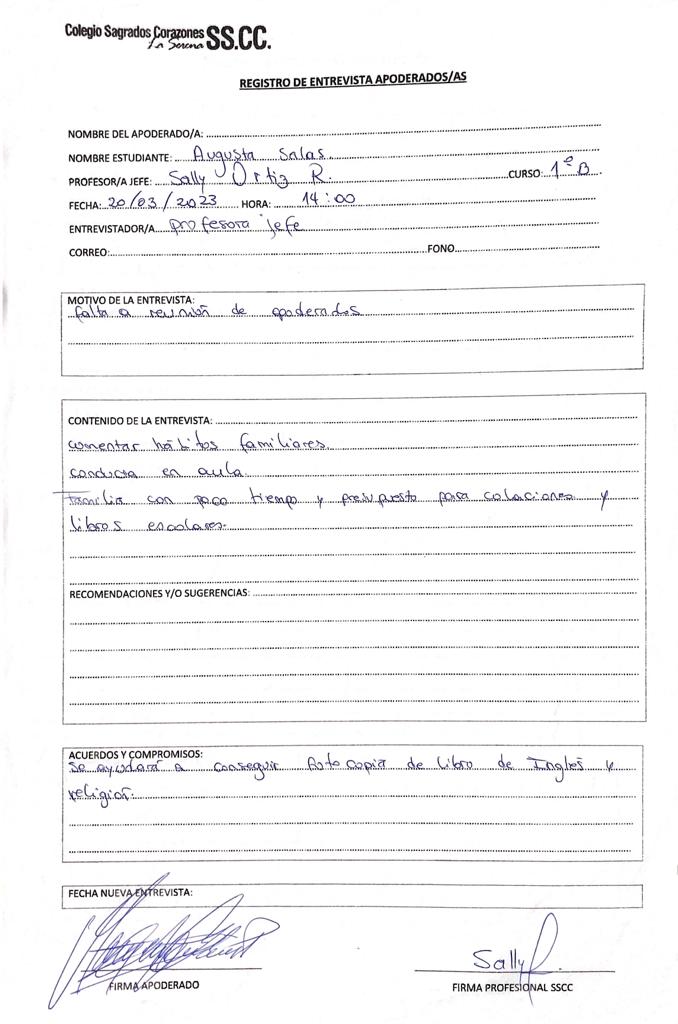 Colegio Sagrados Corazones SS.CC.
La Serena
REGISTRO DE ENTREVISTA APODERADOS/AS
NOMBRE DEL APODERADO/A:
NOMBRE ESTUDIANTE: Augusta Salas
PROFESOR/A JEFE: Sally Ortiz R. CURSO: 1º B
FECHA: 20/03/2023 HORA: 14:00
ENTREVISTADOR/A profesora jefe
CORREO: FONO
MOTIVO DE LA ENTREVISTA:
falta a reunión de apoderados
CONTENIDO DE LA ENTREVISTA:
comentar hábitos familiares
conducta en aula
Familia con poco tiempo y presupuesto para colaciones y
libros escolares.
RECOMENDACIONES Y/O SUGERENCIAS:
ACUERDOS Y COMPROMISOS:
Se ayudará a conseguir fotocopia de libro de Inglés y
religión.
FECHA NUEVA ENTREVISTA:
Sally
FIRMA APODERADO
FIRMA PROFESIONAL SSCC